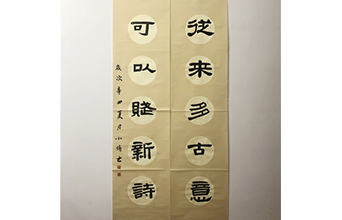 從來多古意
可以賦新詩
歲次辛丑夏月小